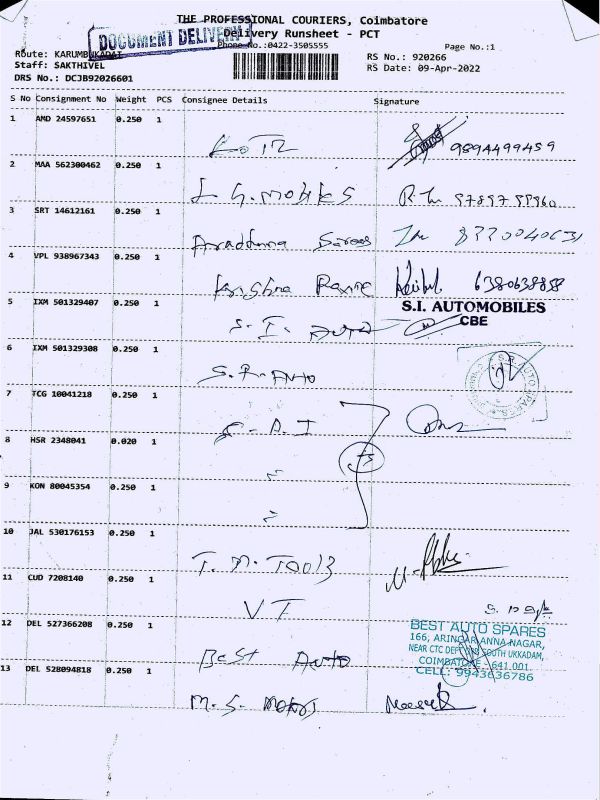 THE PROFESSIONAL COURIERS, Coimbatore
Delivery Runsheet - PCT
DOCUMENT DELIVERY
Phone No.:0422-3505555
Page No.:1
Route: KARUMBUKADAI
Staff: SAKTHIVEL
DRS No.: DCJB92026601
RS No.: 920266
RS Date: 09-Apr-2022
S No Consignment No Weight PCS Consignee Details Signature
1 AMD 24597651 0.250 1
9894499459
2 MAA 562300462 0.250 1
3 SRT 14612161 0.250 1
Aradhana Sarees
4 VPL 938967343 0.250 1
Krishna 6380638858
S.I. AUTOMOBILES
CBE
5 IXM 501329407 0.250 1
S. I. Auto
6 IXM 501329308 0.250 1
S.R. Auto
7 TCG 10041218 0.250 1
8 HSR 2348041 0.020 1
9 KON 80045354 0.250 1
10 JAL 530176153 0.250 1
T. M. Tools
11 CUD 7208140 0.250 1
VT
12 DEL 527366208 0.250 1
BEST AUTO SPARES
166, ARINGAR ANNA NAGAR,
NEAR CTC DEPT SOUTH UKKADAM,
COIMBATORE - 641 001.
CELL: 9943636786
Best Auto
13 DEL 528094818 0.250 1
M. S. Motors